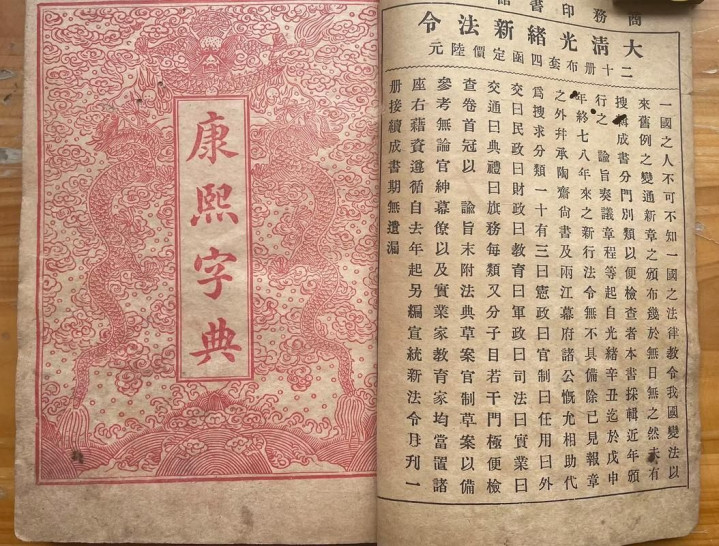 務印書
大清光緒新法令
二十册布套四函定價陸元
一國之人不可不知一國之法律教令我國變法以
來舊例之變通新章之頒布幾於無日無之然未有
搜輯成書分門別類以便檢查者本書採輯近年頒
行之 諭旨奏議章程等起自光緒辛丑迄於戊申
年終七八年來之新行法令無不具備除已見報章
之外幷承陶齋尙書及兩江幕府諸公慨允相助代
爲搜求分類一十有三曰憲政曰官制曰任用曰外
交曰民政曰財政曰教育曰軍政曰司法曰實業曰
交通曰典禮曰旗務每類又分子目若干門極便檢
查卷首冠以 諭旨末附法典草案官制草案以備
參考無論官紳幕僚以及實業家教育家均當置諸
座右藉資遵循自去年起另編宣統新法令月刊一
册接續成書期無遺漏
康熙字典